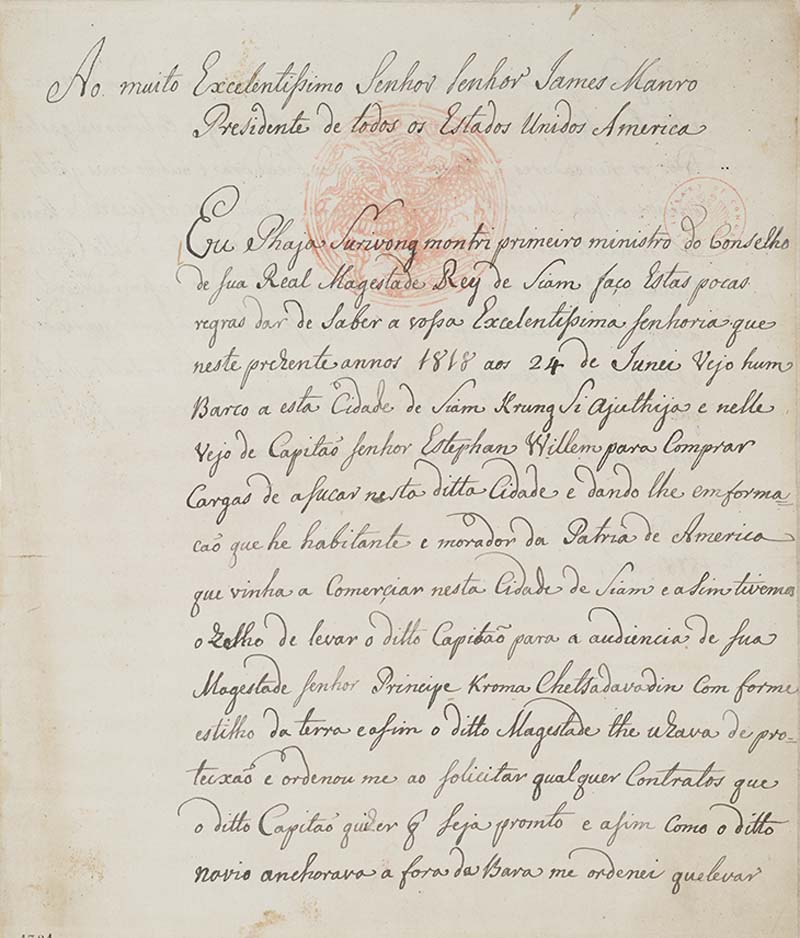 Ao muito Excelentissimo Senhor Senhor James Manro
Presidente de todos os Estados Unidos America
Eu Phaja Surivong montri primeiro ministro do Conselho
de sua Real Magestade Rey de Siam faço Estas pocas
regras dar de Saber a vossa Excelentissima Senhoria que
neste prezente annos 1818 aos 24 de Junei Vejo hum
Barco a esta Cidade de Siam Krung Si Ajuthija e nelle
Vejo de Capitaõ Senhor Estephan Willem para Comprar
Cargas de asucar nesta ditta Cidade e dando lhe em forma=
caõ que he habitante e morador da Patria de America
que vinha a Comerçiar nesta Cidade de Siam e asim tivemos
o Zelho de levar o ditto Capitaõ para a audiencia de Sua
Magestade Senhor Principe Kroma Chetsadavadin Com forme
estilho da terra e asim o ditto Magestade lhe uzava de pro=
teixaõ e ordenou me ao solicitar qualquer Contratos que
o ditto Capitaõ quizer q̃ Seja promto e asim Como o ditto
navio anchorava a fora da Bara me ordenei que levar